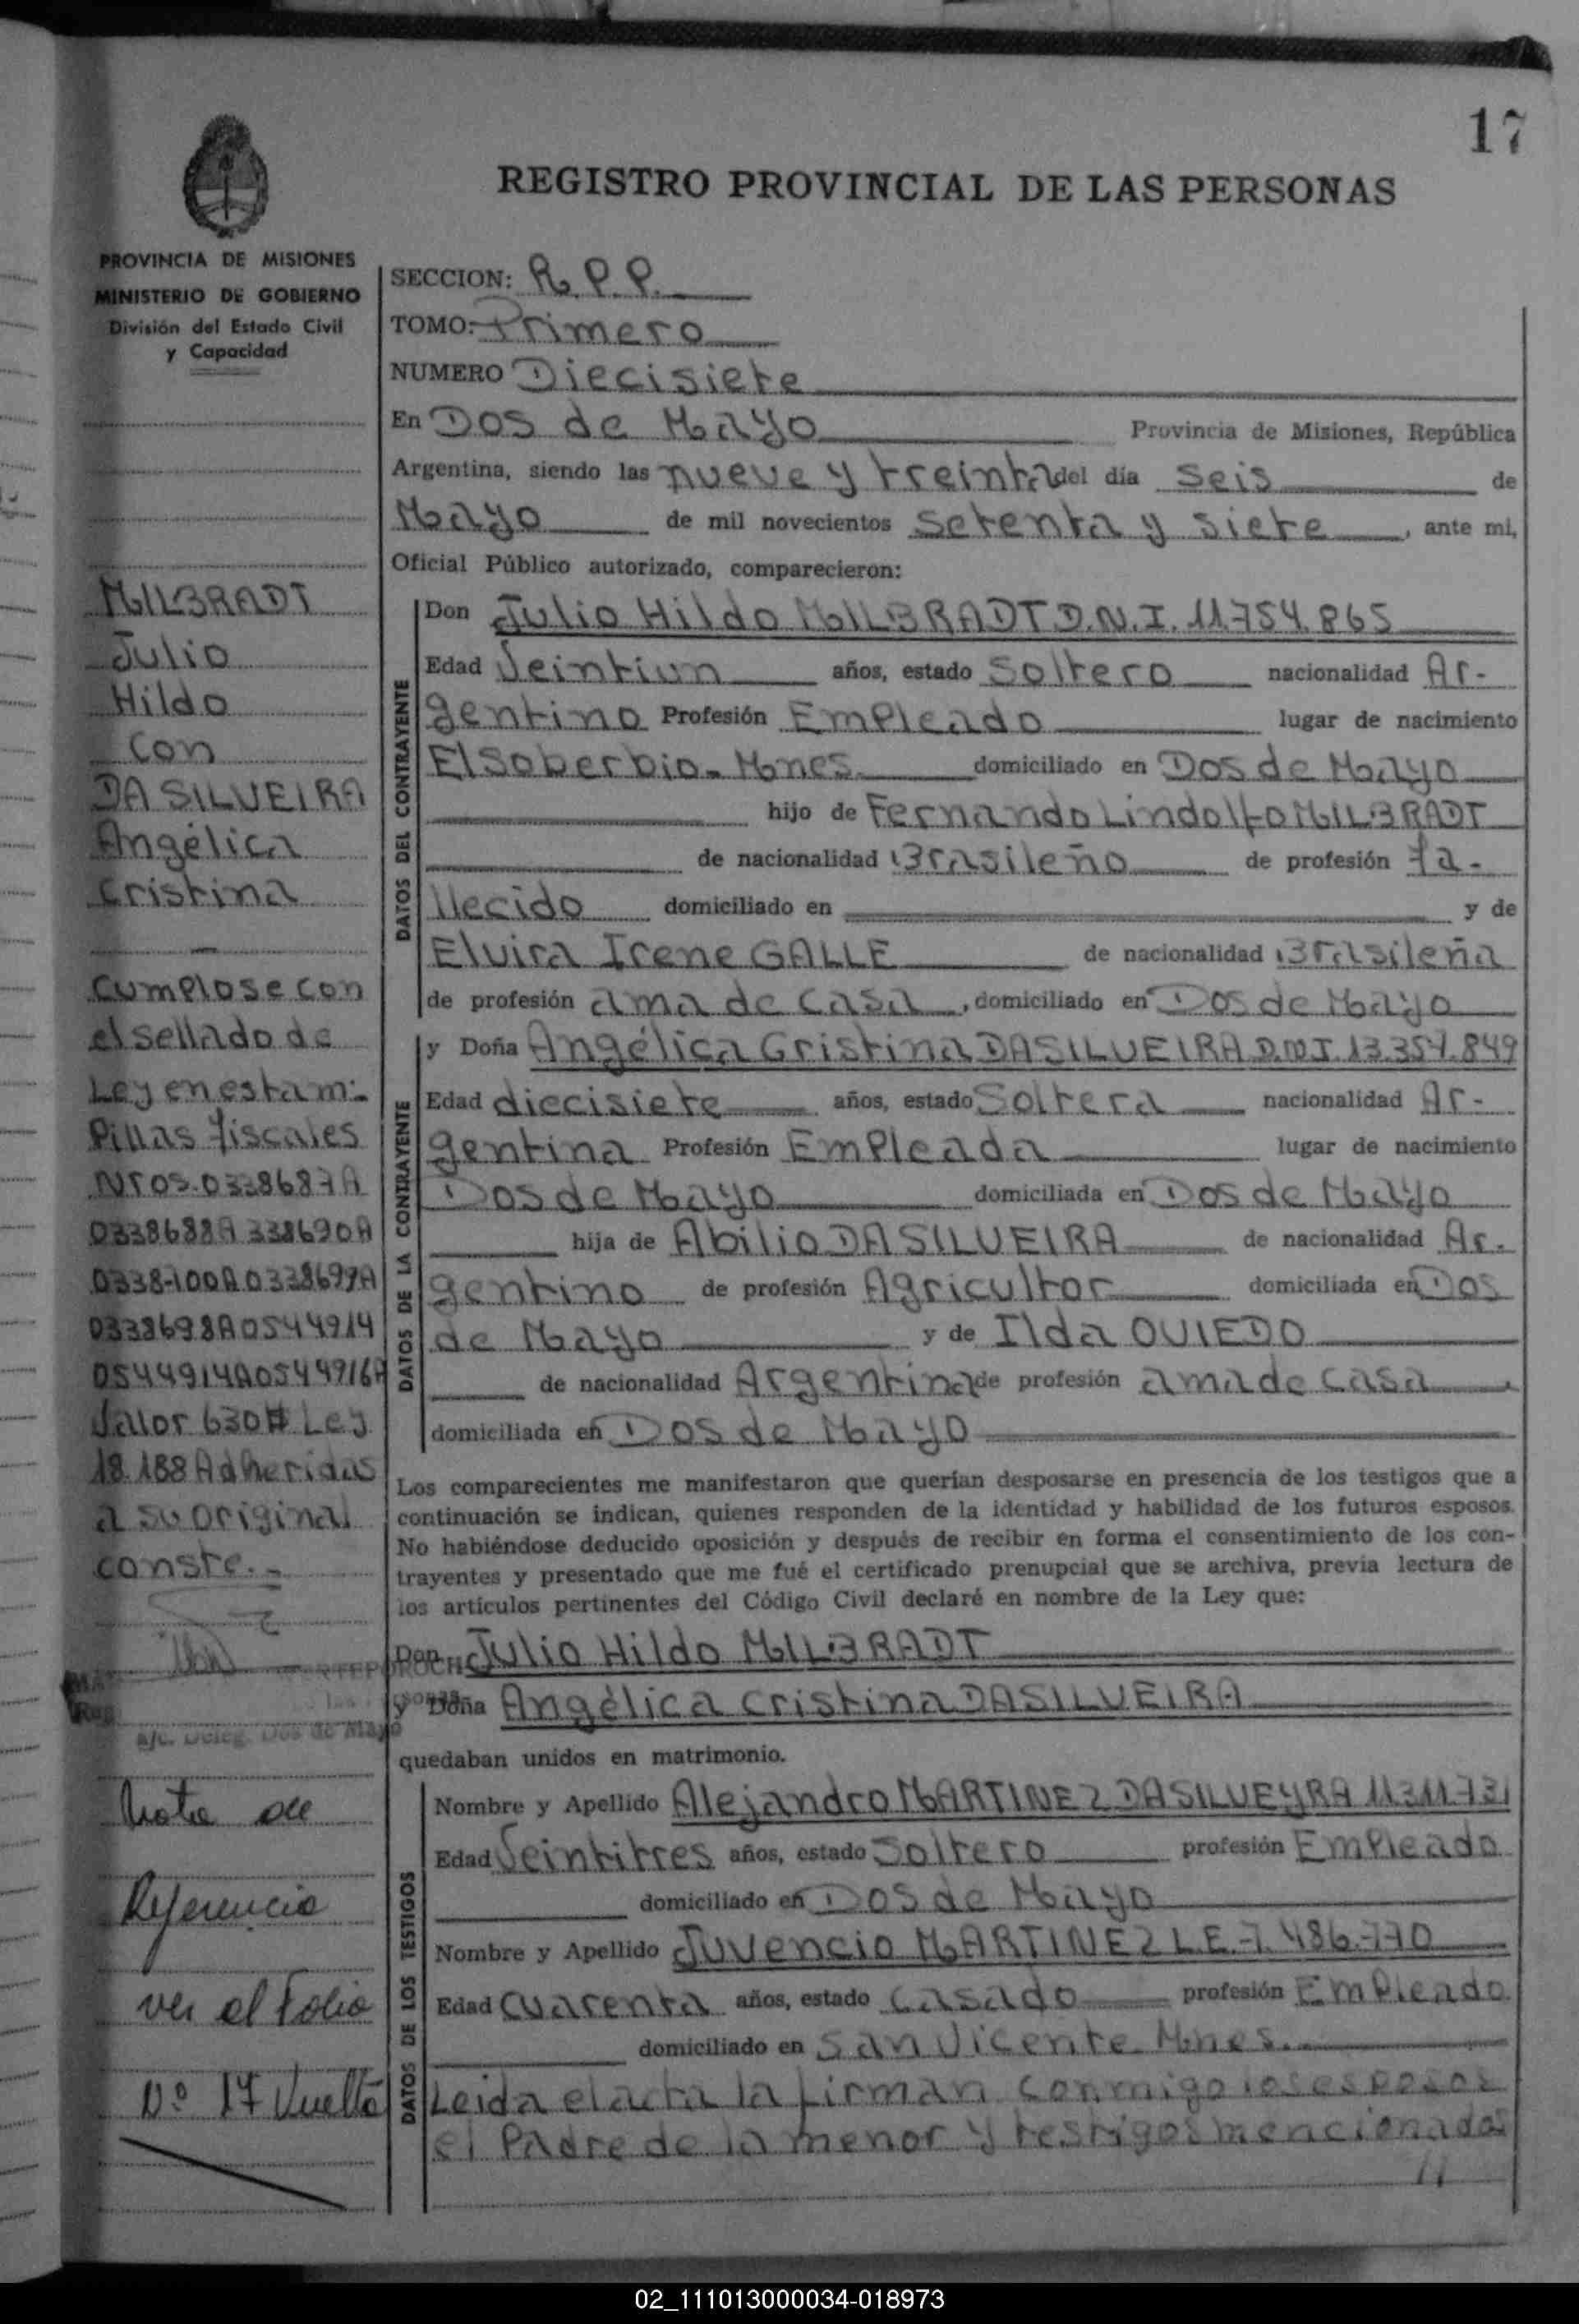 17
REGISTRO PROVINCIAL DE LAS PERSONAS
PROVINCIA DE MISIONES
MINISTERIO DE GOBIERNO
División del Estado Civil
y Capacidad
MILBRADT
Julio
Hildo
con
DA SILVEIRA
Angélica
Cristina
Cumplose con
el sellado de
Ley en estam-
Pillas fiscales
Nros. 0338687A
0338688A 338690A
0338700A 0338699A
0338698A 0544914
0544914A 0544916A
Valor 630 # Ley
18.188 Adheridas
a su original
conste.-
a/c. Deleg. Dos de Mayo
Nota de
Referencia
ver el Folio
Nº 17 Vuelta
SECCION: R.P.P.
TOMO: Primero
NUMERO Diecisiete
En Dos de Mayo Provincia de Misiones, República
Argentina, siendo las nueve y treinta del día seis de
Mayo de mil novecientos setenta y siete, ante mi,
Oficial Público autorizado, comparecieron:
DATOS DEL CONTRAYENTE
Don Julio Hildo MILBRADT D.N.I. 11.754.865
Edad Veintiun años, estado Soltero nacionalidad Ar-
gentino Profesión Empleado lugar de nacimiento
El Soberbio. Mnes. domiciliado en Dos de Mayo
hijo de Fernando Lindolfo MILBRADT
de nacionalidad Brasileño de profesión fa-
llecido domiciliado en y de
Elvira Irene GALLE de nacionalidad Brasileña
de profesión ama de casa, domiciliado en Dos de Mayo
DATOS DE LA CONTRAYENTE
y Doña Angélica Cristina DASILVEIRA D.N.I. 13.357.849
Edad diecisiete años, estado Soltera nacionalidad Ar-
gentina Profesión Empleada lugar de nacimiento
Dos de Mayo domiciliada en Dos de Mayo
hija de Abilio DA SILVEIRA de nacionalidad Ar-
gentino de profesión Agricultor domiciliada en Dos
de Mayo y de Ilda OVIEDO
de nacionalidad Argentina de profesión ama de casa,
domiciliada en Dos de Mayo
Los comparecientes me manifestaron que querían desposarse en presencia de los testigos que a
continuación se indican, quienes responden de la identidad y habilidad de los futuros esposos.
No habiéndose deducido oposición y después de recibir en forma el consentimiento de los con-
trayentes y presentado que me fué el certificado prenupcial que se archiva, previa lectura de
los artículos pertinentes del Código Civil declaré en nombre de la Ley que:
Don Julio Hildo MILBRADT
y Doña Angélica Cristina DASILVEIRA
quedaban unidos en matrimonio.
DATOS DE LOS TESTIGOS
Nombre y Apellido Alejandro MARTINEZ DASILVEYRA 11311.731
Edad Veintitres años, estado Soltero profesión Empleado
domiciliado en Dos de Mayo
Nombre y Apellido Juvencio MARTINEZ L.E. 7.486.770
Edad cuarenta años, estado casado profesión Empleado
domiciliado en San Vicente Mnes.
Leida el acta la firman conmigo los esposos
el Padre de la menor y testigos mencionados
//
02_111013000034-018973